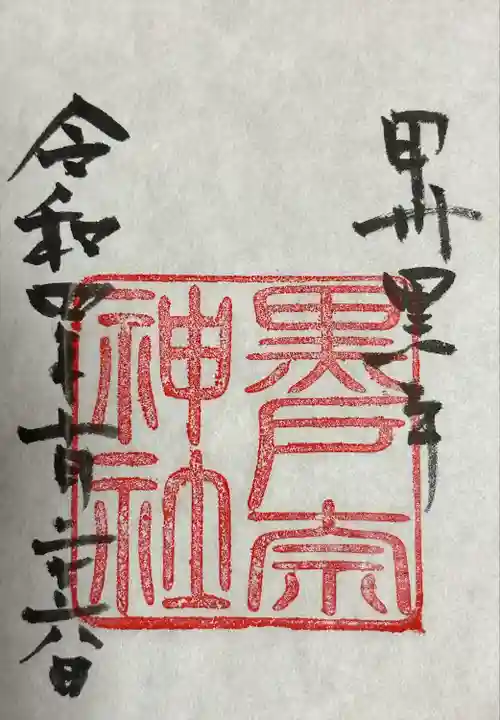 甲州黒戸
黒戸奈
神社
令和四年十一月二十八日